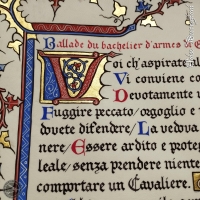 Ballade du bachelier d'armes de
Voi ch'aspirate al
Vi conviene co
Devotamente u
Fuggire peccato, orgoglio e
dovete difendre, La vedova
nere, Essere ardito e proteg
leale, senza prendere niente
comportare un Cavaliere.